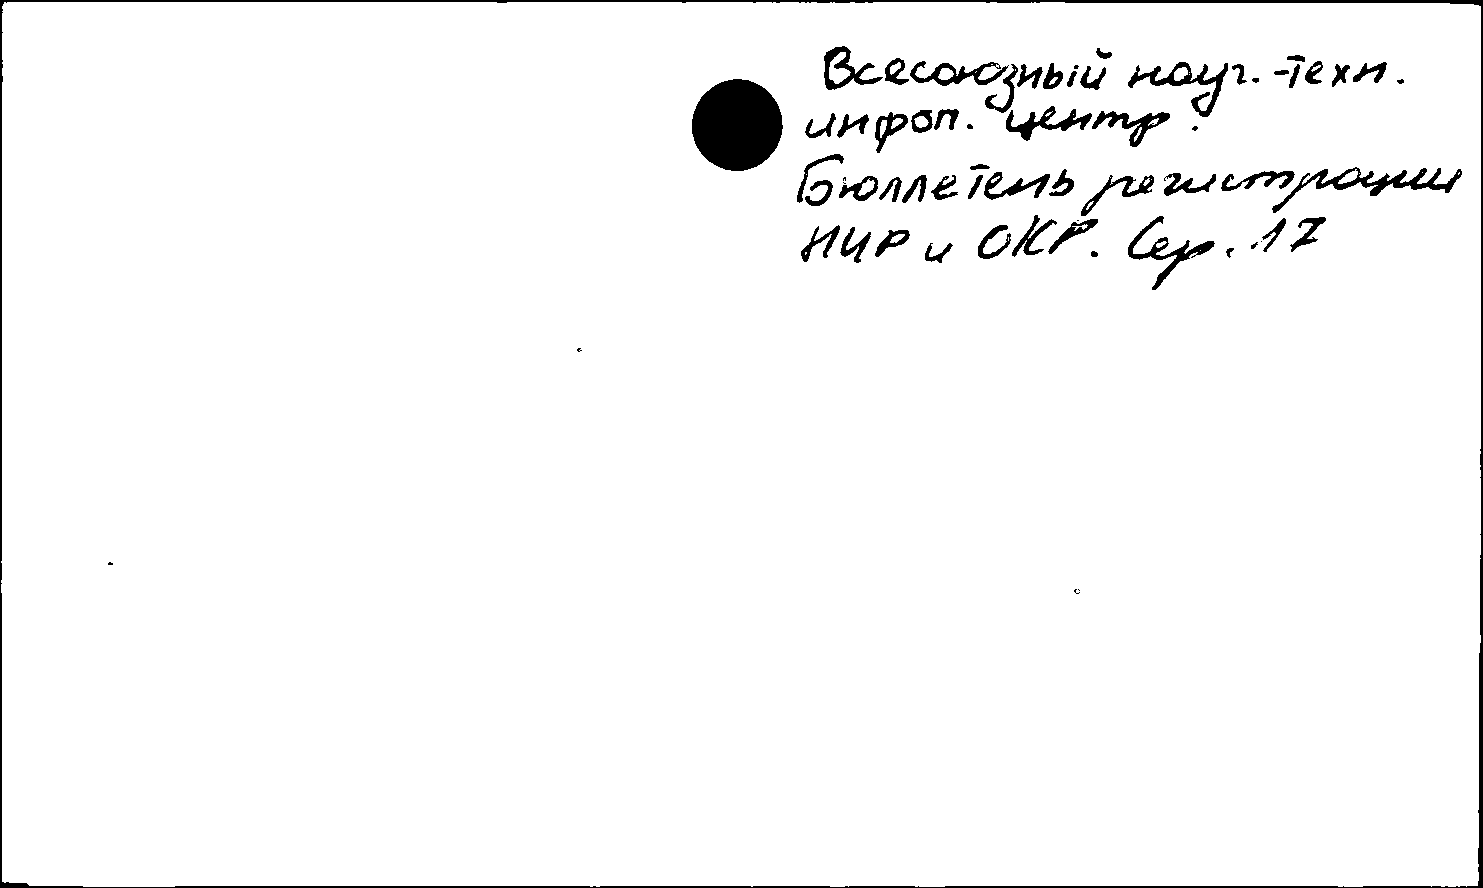 Всесоюзный науч.-техн.
инфоп. центр.
Бюллетень регистрации
НИР и ОКР. Сер. 17